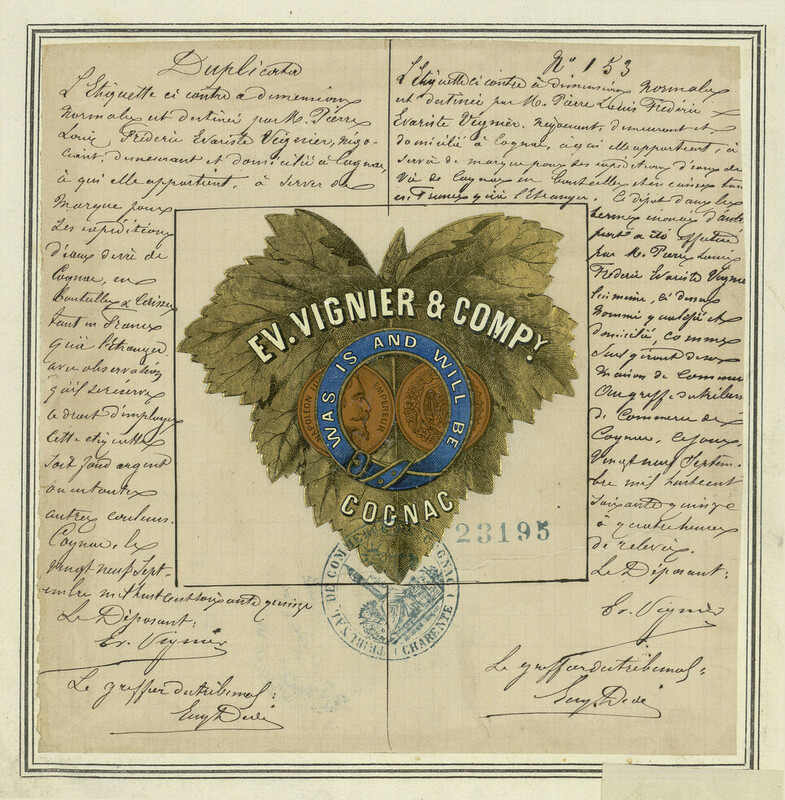 Duplicata
L'Etiquette ci contre à dimensions
Normales est destinée par M. Pierre
Louis Frédéric Evariste Vignier, négo-
ciant, demeurant et domicilié à Cognac,
à qui elle appartient, à servir de
Marque pour
Les expéditions
d'eaux de vie de
Cognac, en
Bouteilles & Caisses
tant en France
qu'à l'étranger
avec observation
qu'il se réserve
le droit d'employer
cette étiquette
soit fond argent
ou en toutes
autres couleurs.
Cognac, le
vingt neuf Sept-
embre mil huit cent soixante quinze
Le Déposant:
Ev. Vignier
Le greffier du tribunal:
N° 153
L'Etiquette ci contre à dimensions Normales
est destinée par M. Pierre Louis Frédéric
Evariste Vignier, négociant, demeurant et
domicilié à Cognac, à qui elle appartient, à
servir de marque pour les expéditions d'eaux de
Vie de Cognac en bouteilles et en caisses tant
en France qu'à l'étranger. Ce dépôt dans les
termes énoncés d'autre
part a été effectué
par M. Pierre Louis
Frédéric Evariste Vignier
lui même, ci dessus
nommé qualifié et
domicilié, comme
de
Maison de Commerce
Au greffe du tribunal
de Commerce de
Cognac, ce jour
vingt neuf Septem-
bre mil huit cent
soixante quinze
à quatre heures
de relevée.
Le Déposant:
Ev. Vignier
Le greffier du tribunal:
EV. VIGNIER & COMPY.
WAS IS AND WILL BE
NAPOLEON III EMPEREUR
COGNAC
23195
TRIBUNAL DE COMMERCE COGNAC (CHARENTE)